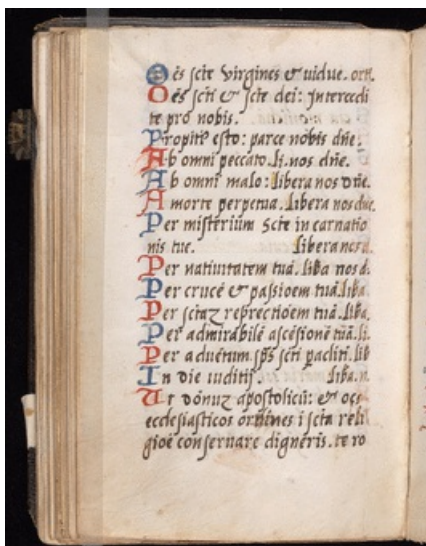 Oēs scte virgines & vidue. orā.
Oēs scti & scte dei: Intercedi
te pro nobis.
Propiti⁹ esto: parce nobis dñe.
Ab omni peccato. li. nos dñe.
Ab omni malo: libera nos dñe.
A morte perpetua. libera nos dñe.
Per misterium scte in carnatio
nis tue. libera nos d.
Per nativitatem tuā. liba nos d.
Per crucē & passioem tuā. liba.
Per sctaz resrectioēm tuā. liba.
Per admirabilē ascēsionē tuā. li.
Per advētum. sp̄s scti paclitī. lib
In die iuditij liba. n.
Ut dōnuz apostolicū: & oēs
ecclesiasticos ordines i scta reli
gioē conservare dignēris. te ro